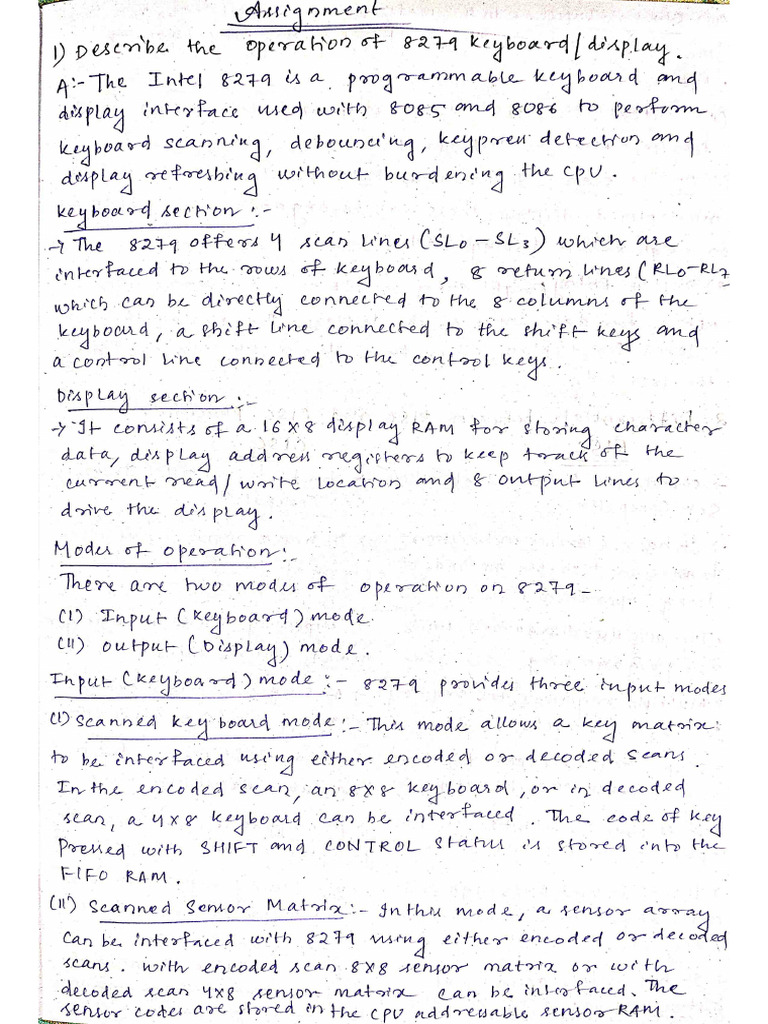 Assignment
1) Describe the operation of 8279 keyboard/display.
A:- The Intel 8279 is a programmable keyboard and
display interface used with 8085 and 8086 to perform
keyboard scanning, debouncing, keypress detection and
display refreshing without burdening the CPU.
Keyboard section:-
→ The 8279 offers 4 scan lines (SL0 - SL3) which are
interfaced to the rows of keyboard, 8 return lines (RL0-RL7
which can be directly connected to the 8 columns of the
keyboard, a shift line connected to the shift keys and
a control line connected to the control keys.
Display section:-
→ It consists of a 16x8 display RAM for storing character
data, display address registers to keep track of the
current read/write location and 8 output lines to
drive the display.
Modes of operation:-
There are two modes of operation on 8279-
(I) Input (Keyboard) mode.
(II) output (Display) mode.
Input (Keyboard) mode:- 8279 provides three input modes
(I) Scanned key board mode:- This mode allows a key matrix
to be interfaced using either encoded or decoded scans.
In the encoded scan, an 8x8 keyboard, or in decoded
scan, a 4x8 keyboard can be interfaced. The code of key
Pressed with SHIFT and CONTROL status is stored into the
FIFO RAM.
(II) Scanned Sensor Matrix:- In this mode, a sensor array
can be interfaced with 8279 using either encoded or decoded
scans. with encoded scan 8x8 sensor matrix or with
decoded scan 4x8 sensor matrix can be interfaced. The
sensor codes are stored in the CPU addressable sensor RAM.